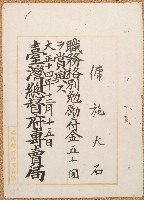 傭 施火石
職務格別勉勵付金五十圓
ヲ賞與ス
大正十四年十二月十五日
臺灣總督府專賣局